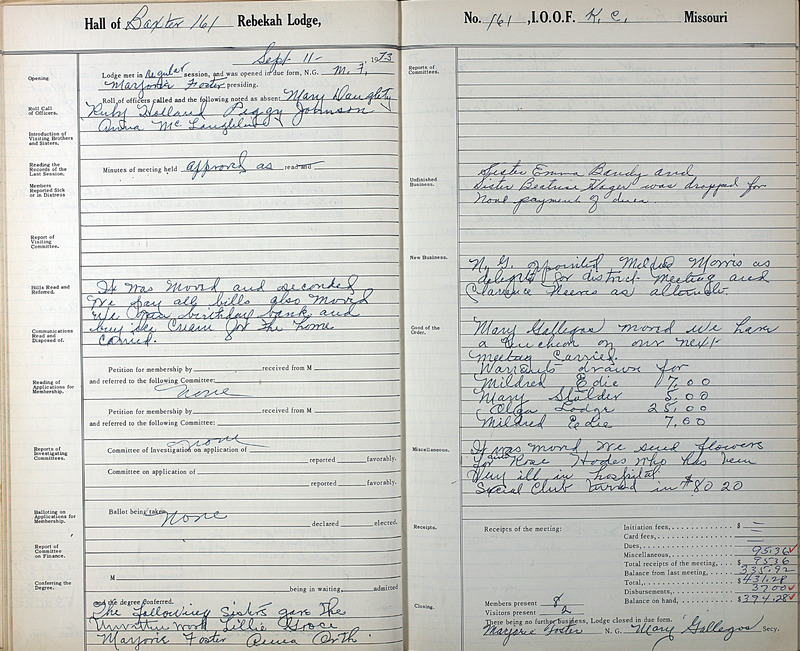 Hall of Baxter 161 Rebekah Lodge,
Sept 11- , 1973
Opening
Lodge met in regular session, and was opened in due form, N.G. M. F,
Marjorie Foster presiding.
Roll Call of Officers.
Roll of officers called and the following noted as absent Mary Daughty
Ruby Holland Peggy Johnson
Anna McLaughlin
Introduction of Visiting Brothers and Sisters.
Reading the Records of the Last Session.
Minutes of meeting held approved as read and
Members Reported Sick or in Distress
Report of Visiting Committee.
Bills Read and Referred.
It was moved and seconded
we pay all bills also moved
we birthday bank and
buy ice cream for the home
carried.
Communications Read and Disposed of.
Petition for membership by received from M
and referred to the following Committee:
none
Reading of Applications for Membership.
Petition for membership by received from M
and referred to the following Committee:
none
Reports of Investigating Committees.
Committee of Investigation on application of
reported favorably.
Committee on application of
reported favorably.
Balloting on Applications for Membership.
Ballot being taken
none
declared elected.
Report of Committee on Finance.
Conferring the Degree.
M
being in waiting, admitted
and the degree conferred.
The following Sisters gave the
unwritten work Lillie Grace
Marjorie Foster Anna Orth
No. 161 , I.O.O.F. K. C. Missouri
Reports of Committees.
Unfinished Business.
Sister Emma Bandy and
Sister Beatrice Hager was dropped for
None payment of dues.
New Business.
N. G. appointed Mildred Morris as
delegate for district meeting and
Clarence as
Good of the Order.
Mary Gallegos moved we have
a luncheon on our next
meeting Carried.
Warrants drawn for
Mildred Edie 7.00
Mary Stalder 5.00
Olga Lodge 25.00
Mildred Edie 7.00
Miscellaneous.
It was moved we send flowers
for Rose who has been
very ill in hospital.
Special Club turned in $80 20
Receipts.
Receipts of the meeting:
Initiation fees, $
Card fees,
Dues,
Miscellaneous, 95.36
Total receipts of the meeting, $ 95 36
Balance from last meeting, 335.92
Total, $ 431.28
Disbursements, 37.00
Balance on hand, $ 394.28
Closing.
Members present 8
Visitors present 2
There being no further business, Lodge closed in due form.
Marjorie Foster N. G. Mary Gallegos Secy.